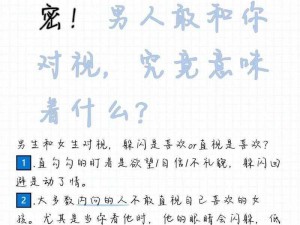 密！男人敢和你
对视，究竟意味
着什么？
男生和女生对视，躲闪是喜欢or直视是喜欢？
1.直勾勾的盯着是欲望/自信/不礼貌，躲闪回
避是动了情。
2.大多数内向的人不敢直视自己喜欢的女
孩。尤其是当你看他时，他的眼睛会闪躲，低